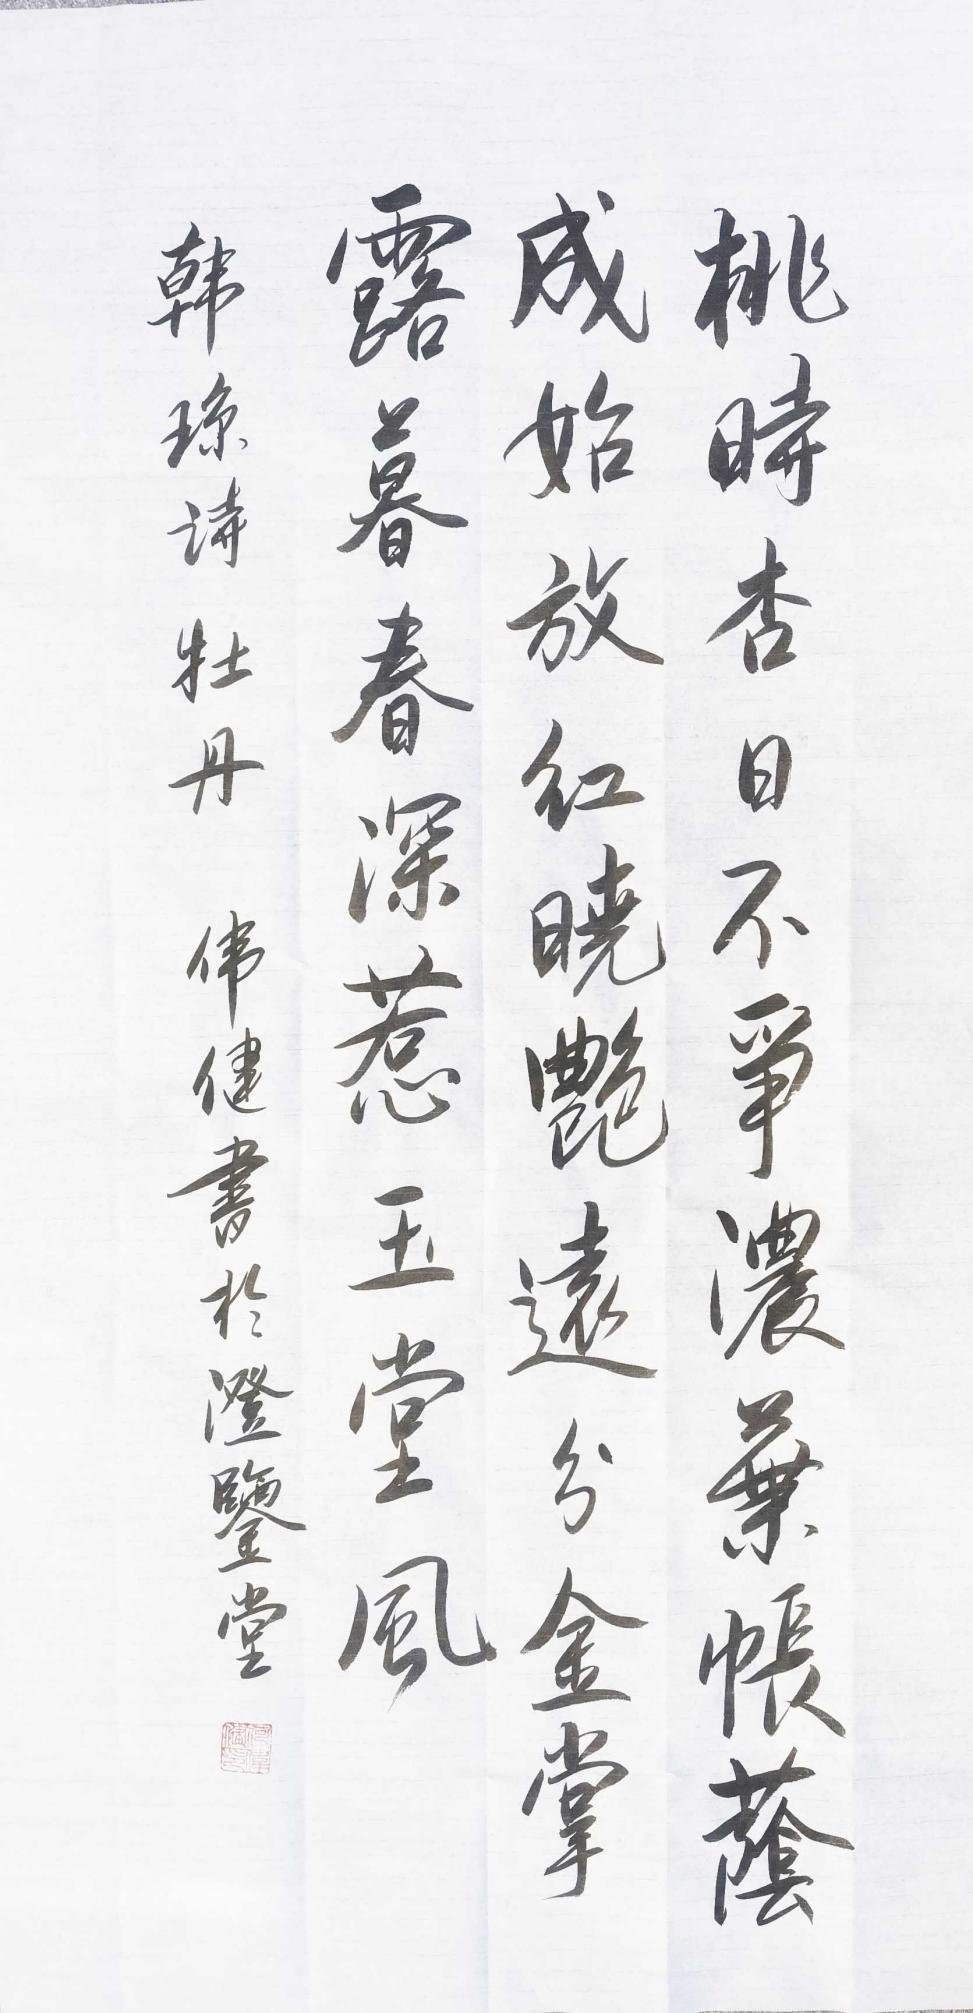 桃時杏日不爭濃葉帳蔭
成始放紅曉艷遠分金掌
露暮春深惹玉堂風
韩琮诗牡丹 伟健書於澄鑒堂